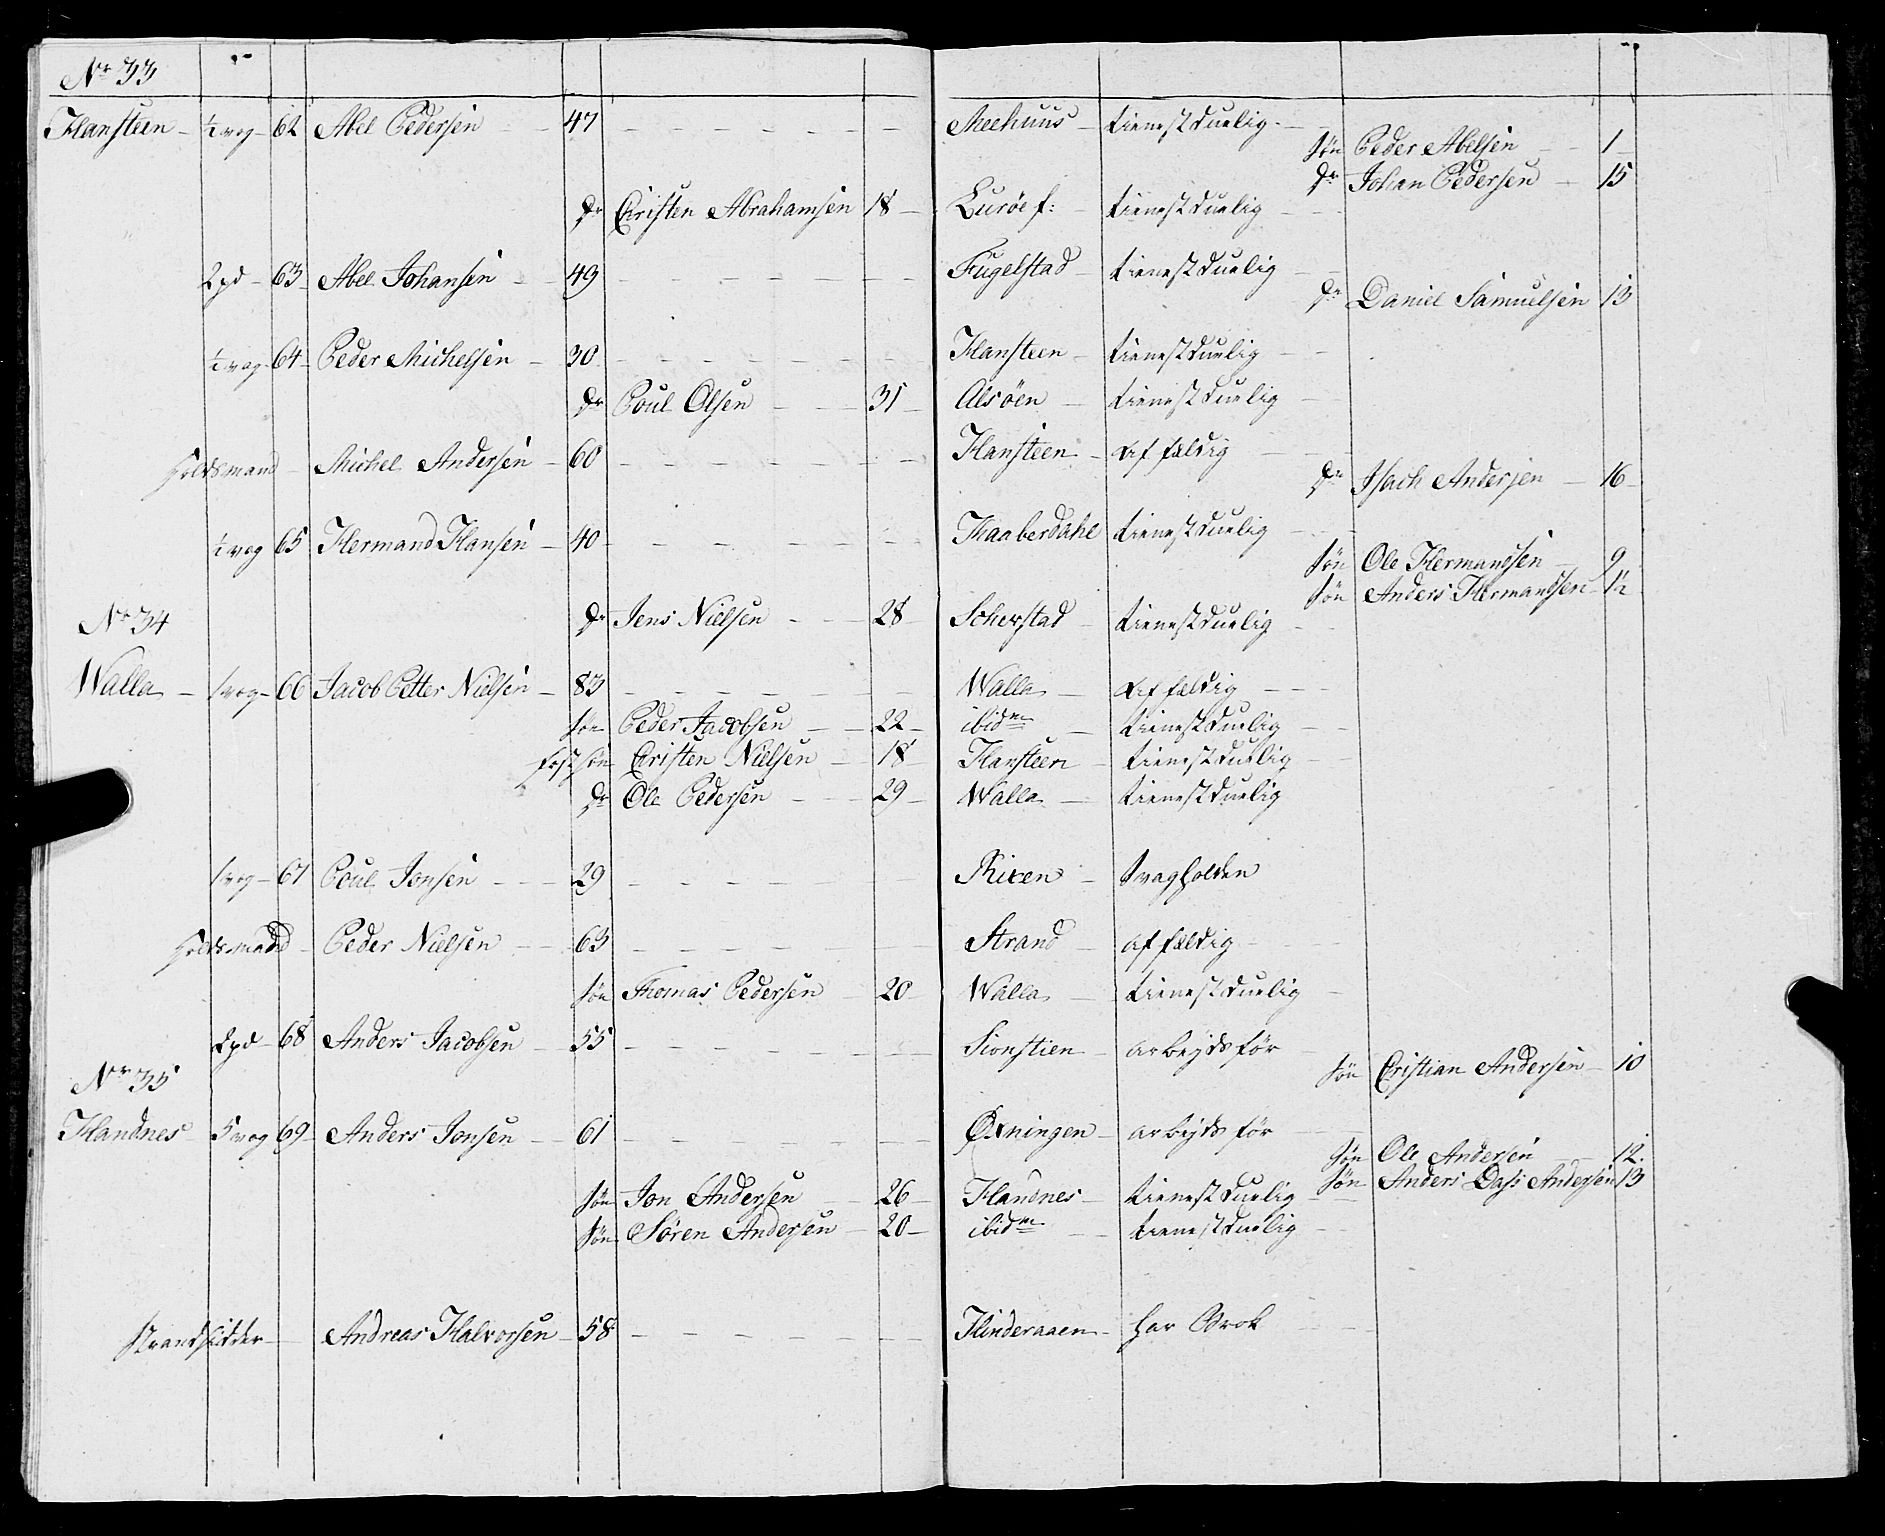 Nr 33
Hansteen - ½ vog - 62 Abel Pedersen - 47 - Meehuus - tienestduelig -
Søn Peder Abelsen - 1
Dr Johan Pedersen - 15
Dr Cristen Abrahamsen 18 - Lurøe f: - tienestduelig
2 pd - 63 Abel Johansen - 49 - Fugelstad - tienestduelig
Dr Daniel Samuelsen 13
½ vog - 64 Peder Michelsen - 30 - Hansteen - tienestduelig
Dr Poul Olsen - 31 - Alsøen - tienestduelig
Holdsmand - Michel Andersen - 60 - Hansteen - affældig
Dr Isach Andersen - 16
½ vog 65 Hermand Hansen - 40 - Haaberdahl tienestduelig
Søn Ole Hermandsen - 9
Søn Anders Hermandsen - 1½
Nr 34
Dr Jens Nielsen - 28 - Scherstad - tienestduelig
Walla - 1 vog - 66 Jacob Petter Nielsen - 83 - Walla - affældig
Søn Peder Jacobsen - 22 - ibidm - tienestduelig
Fostsøn Cristen Nielsen - 18 - Hansteen - tienestduelig
Dr Ole Pedersen - 29 - Walla - tienestduelig
1 vog - 67 Poul Jonsen - 29 - Rixen - Svagholden
Holdsmand - Peder Nielsen - 63 - Strand - affældig
Søn Thomas Pedersen - 20 - Walla - tienestduelig
2 pd - 68 Anders Jacobsen - 55 - Sionstien - arbeydsfør
Søn Cristian Andersen - 10
Nr 35
Handnes - 5 vog 69 - Anders Jonsen - 61 - Øxningen - arbeydsfør
Søn Ole Andersen - 12
Søn Anders Dass Andersen 13
Søn Jon Andersen - 26 - Handnes - tienestduelig
Søn Søren Andersen - 20 - ibidm - tienestduelig
Strandsidder - Andreas Halvorsen - 58 - Hinderaaen - har Brok